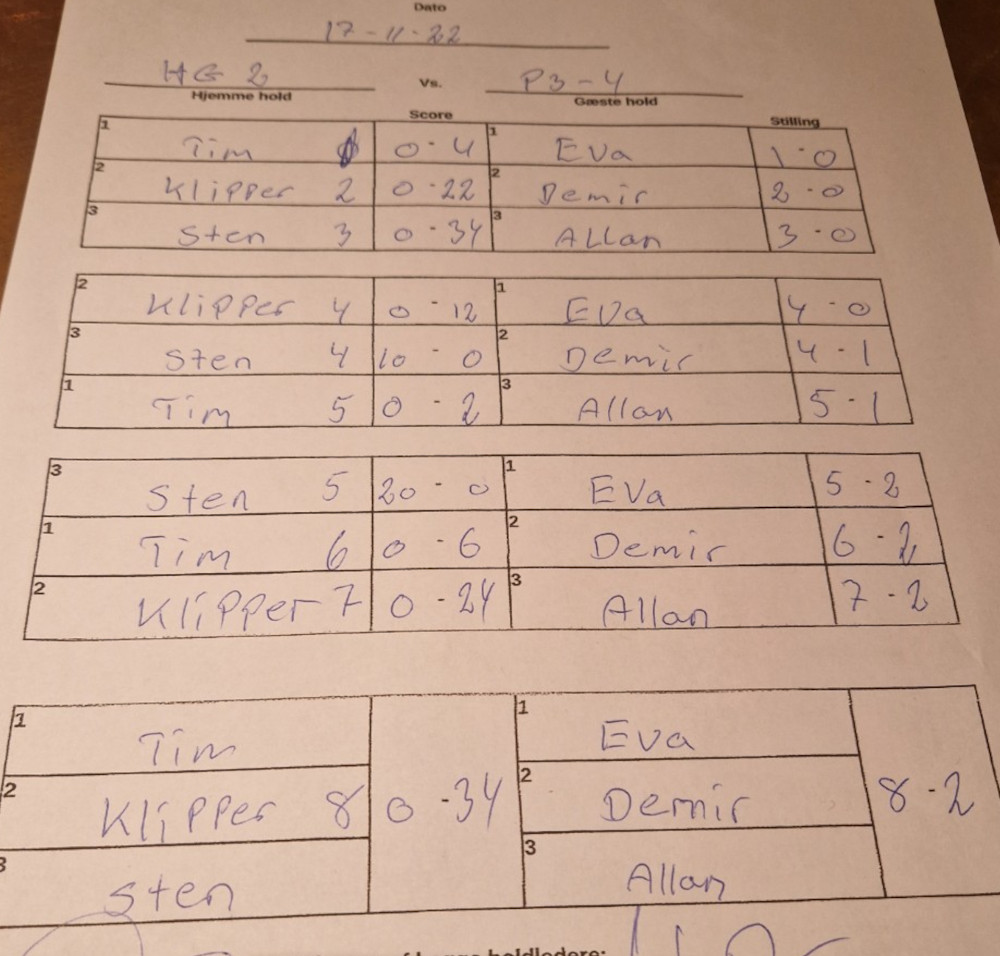 Dato
17-11-22
HG 2 Vs. P3-4
Hjemme hold Gæste hold
Score Stilling
1 Tim 0-4 1 Eva 1-0
2 Klipper 2 0-22 2 Demir 2-0
3 Sten 3 0-34 3 Allan 3-0
2 Klipper 4 0-12 1 Eva 4-0
3 Sten 4 10-0 2 Demir 4-1
1 Tim 5 0-2 3 Allan 5-1
3 Sten 5 20-0 1 Eva 5-2
1 Tim 6 0-6 2 Demir 6-2
2 Klipper 7 0-24 3 Allan 7-2
1 Tim 1 Eva
2 Klipper 8 0-34 2 Demir 8-2
3 Sten 3 Allan
holdledere: